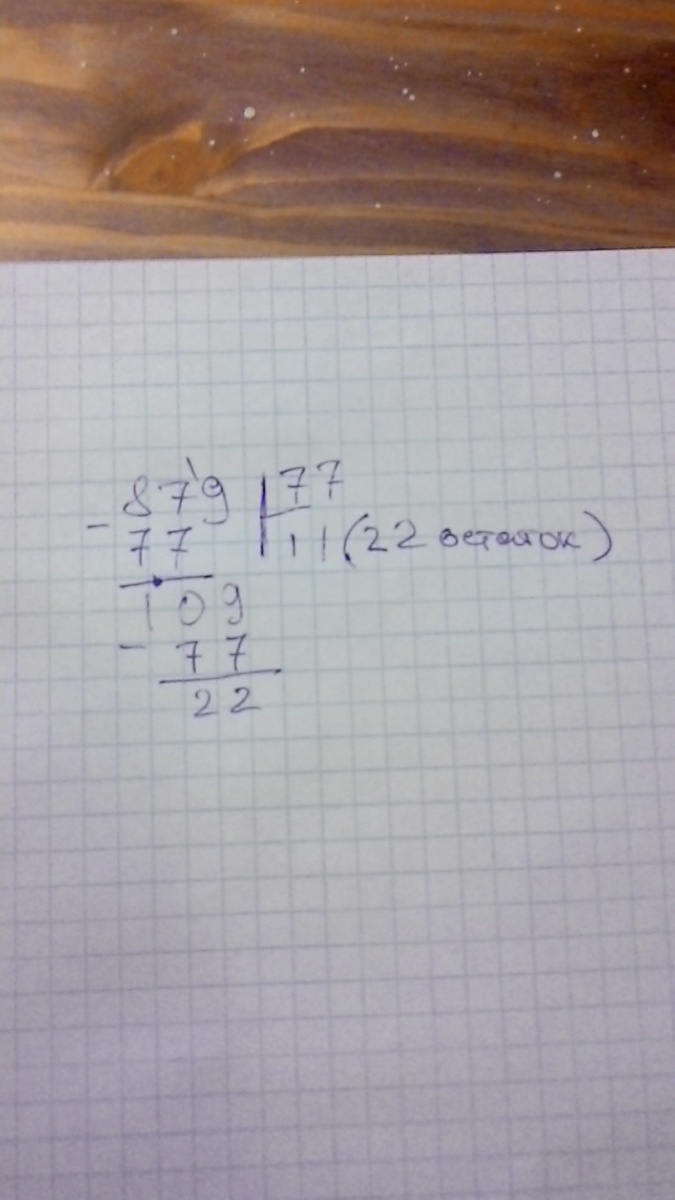 879 77
- 77 11 (22 остаток)
109
- 77
22